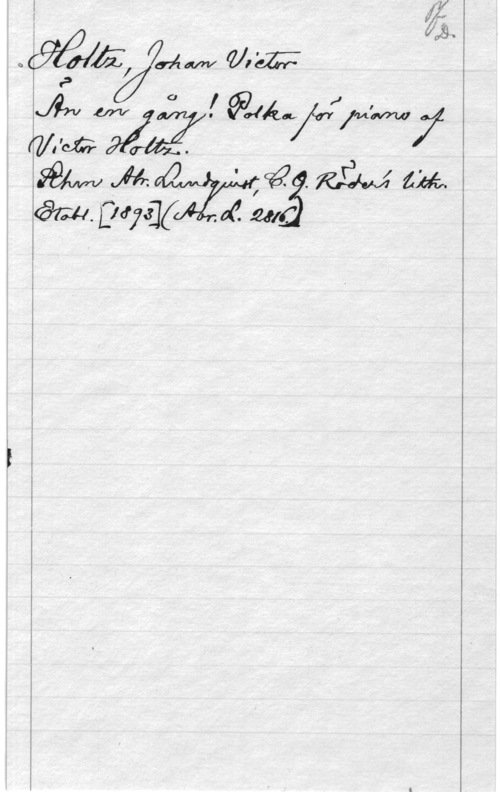 Pf
D.
Holtz, Johan Victor
Än en gång! Polka för piano af
Victor Holtz.
Sthm Abr. Lundquist, C. G. Röder's lith.
Etabl. [1893] (Abr. L. 2816)